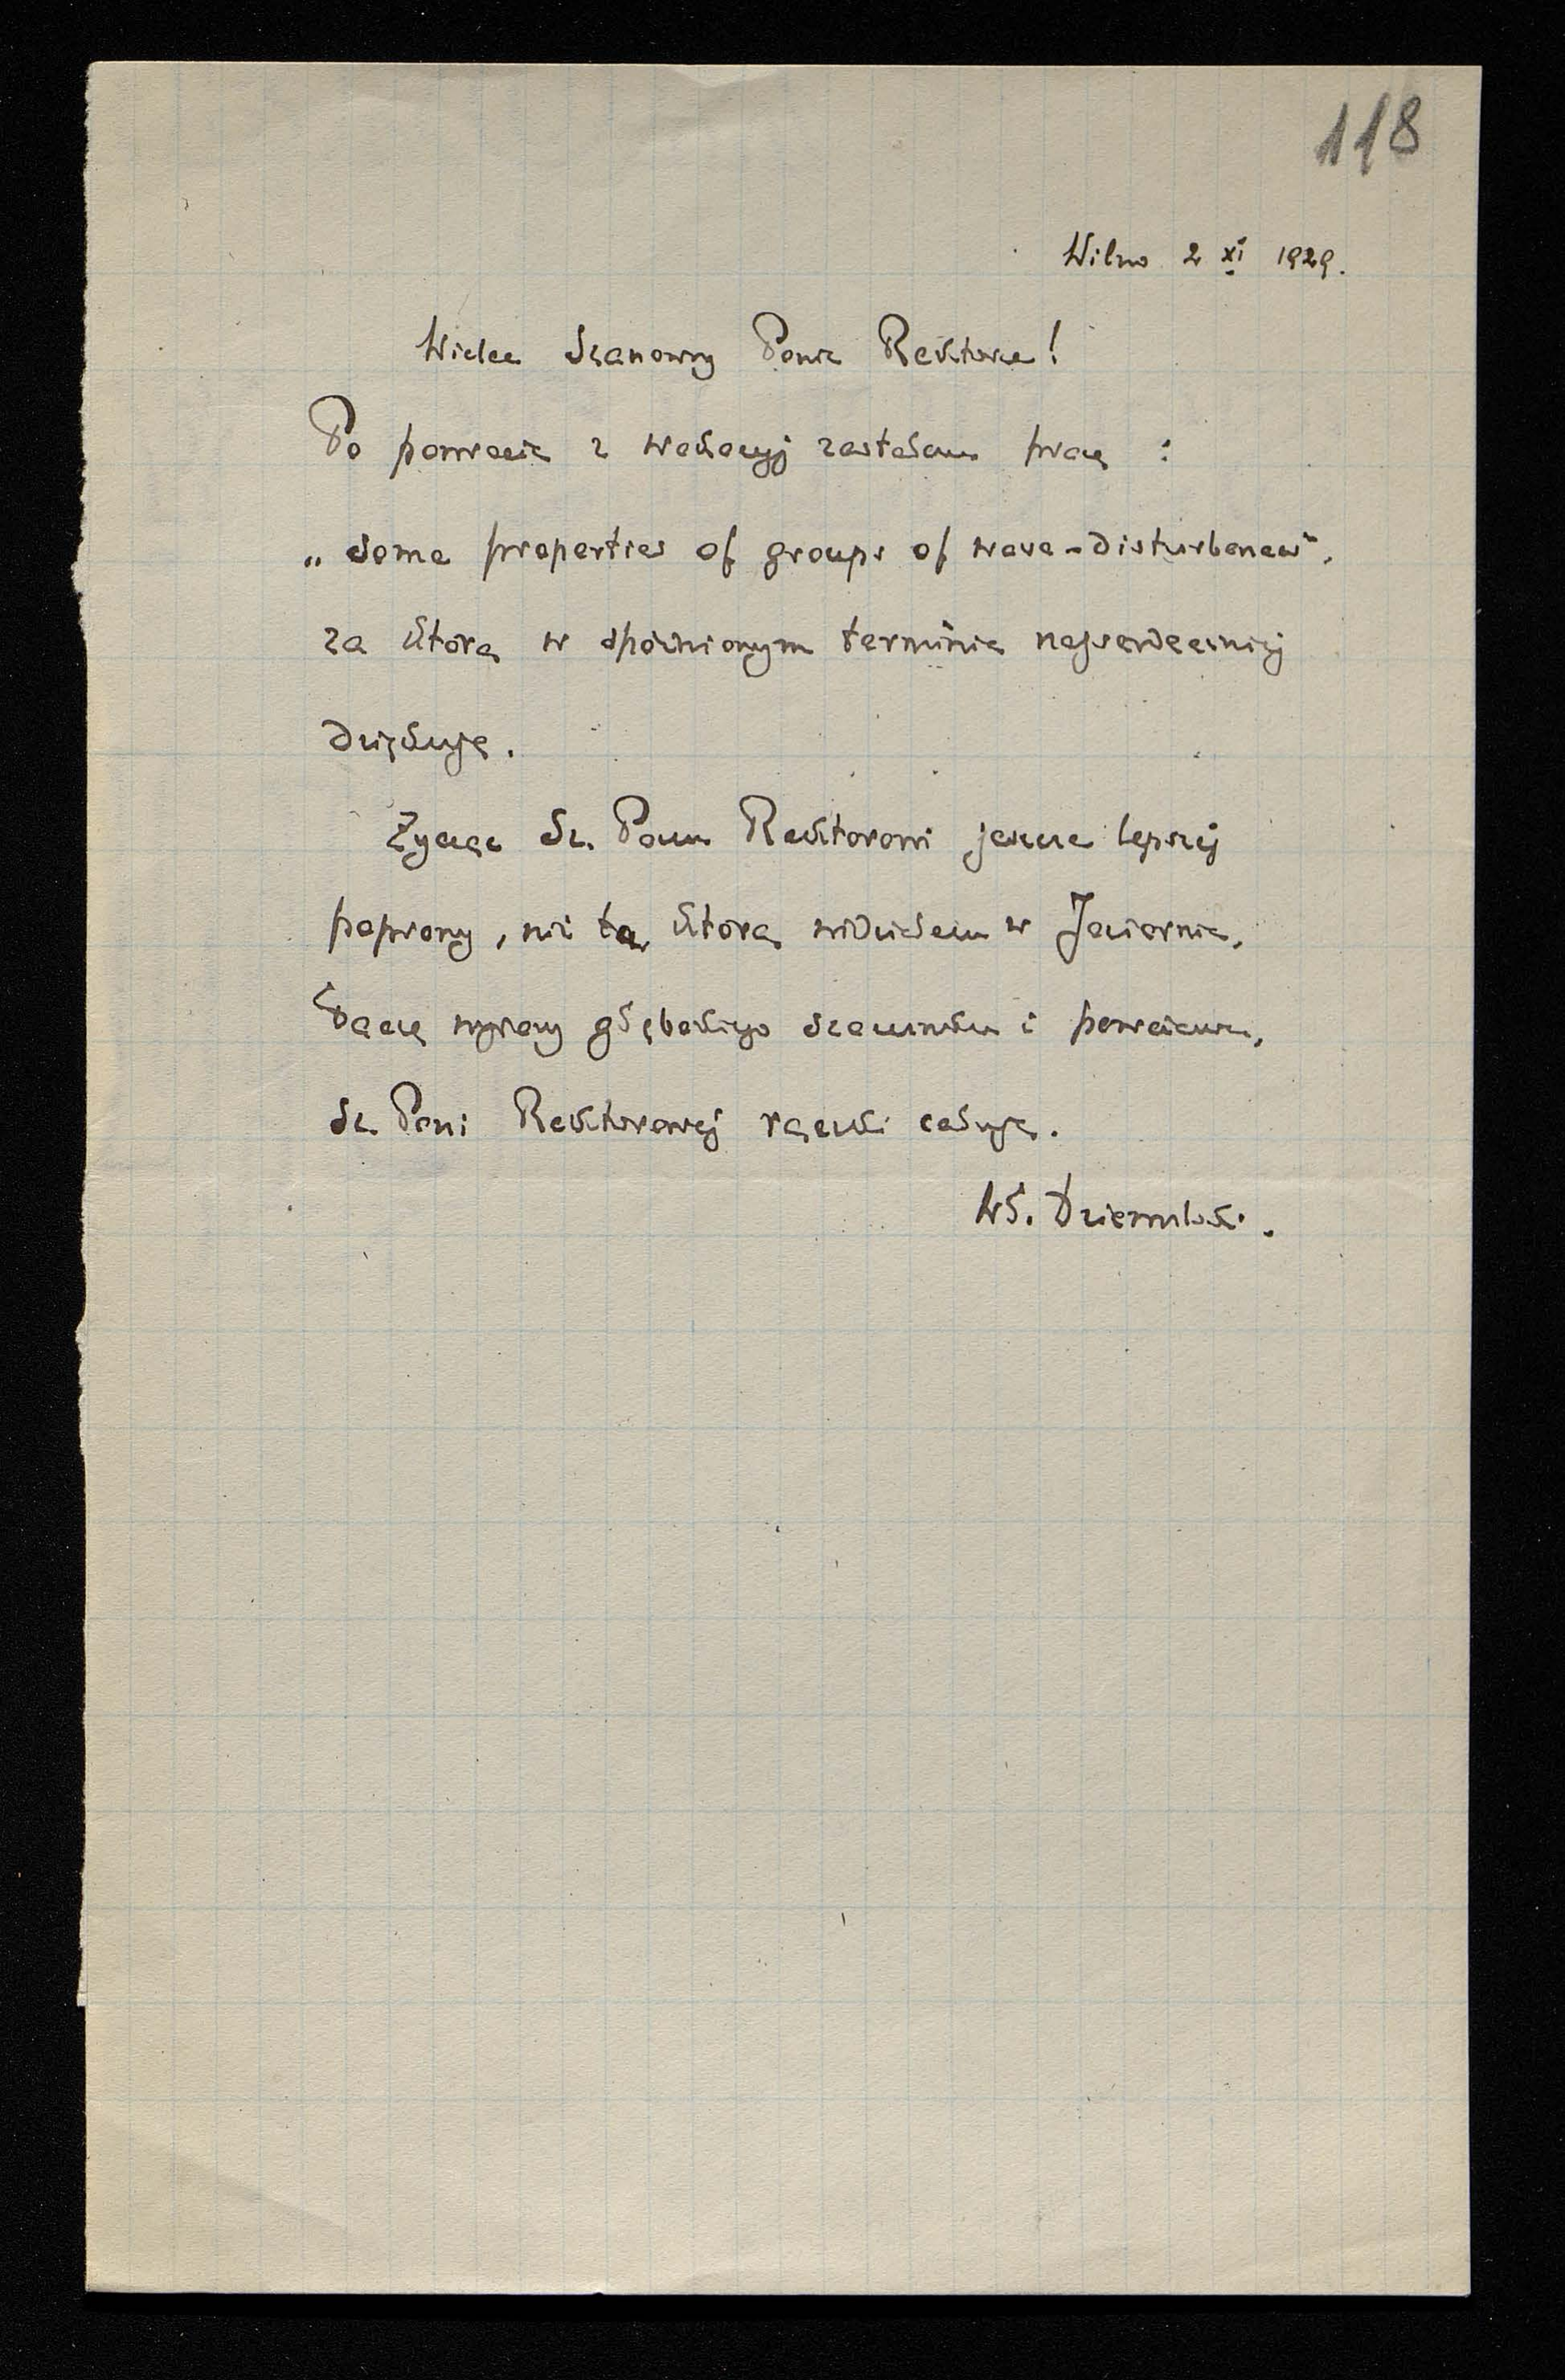 118
Wilno 2 XI 1929.
Wielce Szanowny Panie Rektorze!
Po powrocie z wakacyj zastałem pracę :
„Some properties of groups of wave-disturbances",
za którą w spóźnionym terminie najserdeczniej
dziękuję.
Życząc Sz. Panu Rektorowi jeszcze lepszej
poprawy, niż tą, którą widziałem w Jeziornie,
łączę wyrazy głębokiego szacunku i poważania,
Sz. Pani Rektorowej rączki całuję.
Wł. Dziewulski.